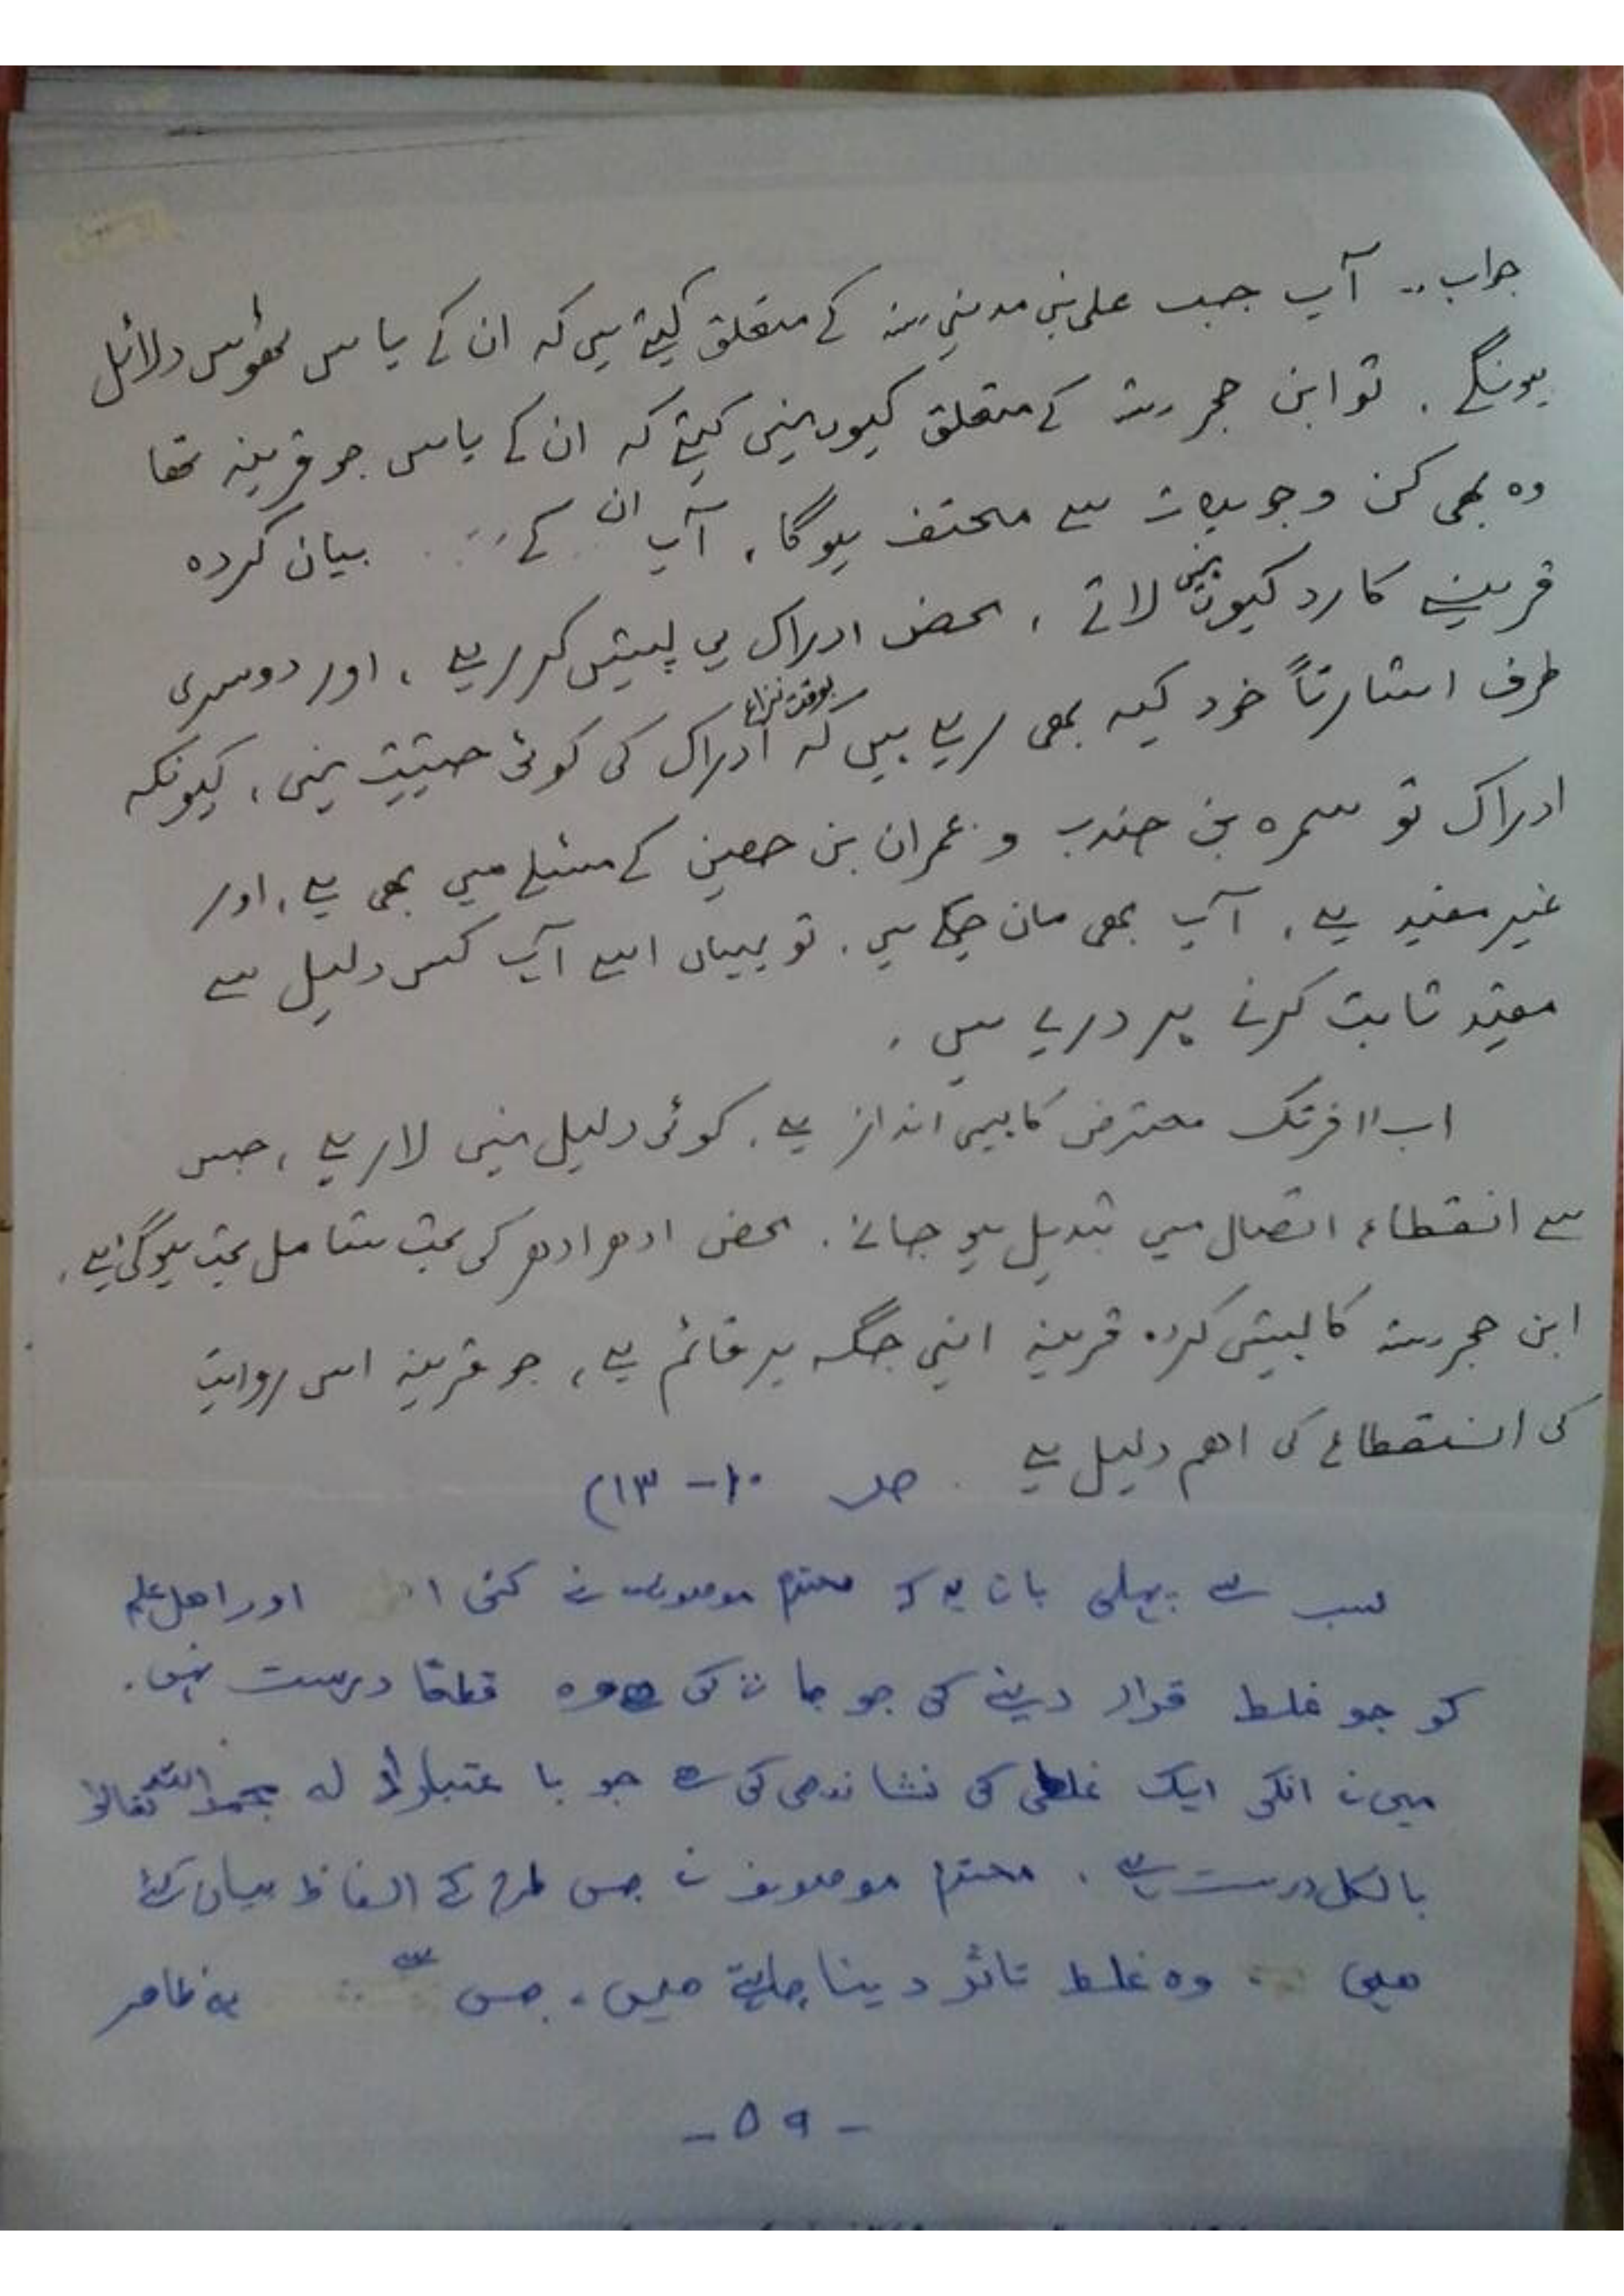 جواب۔۔ آپ جب علی بن مدینی رحمہ کے متعلق کہتے ہیں کہ ان کے پاس ٹھوس دلائل
ہونگے ۔ تو ابن حجر رحمہ کے متعلق کیوں نہیں کہتے کہ ان کے پاس جو قرینہ تھا
وہ بھی کن وجوہات سے محتف ہوگا ، آپ ان کے بیان کردہ
قرینے کا رد کیوں نہیں لاتے ، محض ادراک ہی پیش کر رہے ، اور دوسری
طرف اشارتاً خود کہہ بھی رہے ہیں کہ بوقت نزاع ادراک کی کوئی حیثیت نہیں ، کیونکہ
ادراک تو سمرہ بن جندب و عمران بن حصین کے مسئلے میں بھی ہے ، اور
غیر مفید ہے ، آپ بھی مان چکے ہیں ۔ تو یہاں اسے آپ کس دلیل سے
مفید ثابت کرنے پر درپے ہیں ،
اب آخر تک معترض کا یہی انداز ہے ، کوئی دلیل نہیں لا رہے ، جس
سے انقطاع اتصال میں تبدیل ہو جائے ۔ محض ادھر ادھر کی بحث شامل بحث ہوگئی ہے ،
ابن حجر رحمہ کا پیش کردہ قرینہ اپنی جگہ پر قائم ہے ، جو قرینہ اس روایت
کی انقطاع کی اھم دلیل ہے ۔ صـ ۱۰ - ۱۳)
سب سے پہلی بات یہ کہ محترم موصوف نے کئی اور اھل علم
کو جو غلط قرار دینے کی جو بات کی وہ قطعا درست نہیں ۔
میں نے انکی ایک غلطی کی نشاندھی کی ہے جو با عتبار ادلہ بحمد اللہ تعالیٰ
بالکل درست ہے ۔ محترم موصوف نے جس طرح کے الفاظ بیان کئے
ھیں وہ غلط تاثر دینا چاہتے ھیں ، جس سے یہ ظاھر
- ۵۹ -